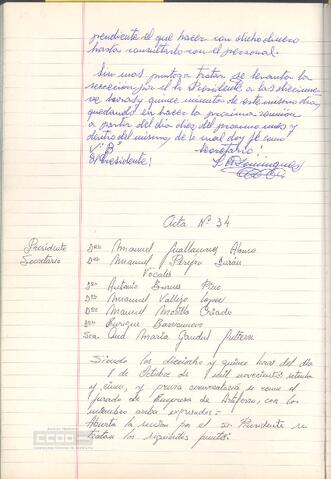 pendiente el qué hacer con dicho dinero
hasta consultarlo con el personal.
Sin mas puntos a tratar se levanta la
seccion por el Sr Presidente a las diecinue
ve horas y quince minutos de este mismo dia,
quedando en hacer la proxima reunion
a partir del dia diez del proximo mes y
dentro del mismo, de lo cual doy fe como
Vº Bº Secretario:
El Presidente:
Acta Nº 34
Presidente Don Manuel Alonso
Secretario Don Manuel Durán
Vocales
Don Antonio
Don Manuel Vallejo Lopez
Don Manuel Morillo Criado
Don Enrique
Sra. Ana Maria
Siendo las dieciocho y quince horas del día
8 de Octubre de mil novecientos setenta
y cinco, y previa convocatoria se reune el
Jurado de Empresa de con los
miembros arriba expresados =
Abierta la seccion por el Sr Presidente se
tratan los siguientes puntos:
CCOO